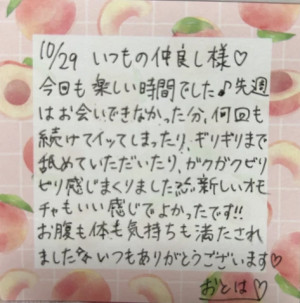 10/29 いつもの仲良し様♡
今日も楽しい時間でした♪先週
はお会いできなかった分、何回も
続けてイッてしまったり、ギリギリまで
舐めていただいたり、ガクガクビリ
ビリ感じまくりました💦新しいオモ
チャもいい感じでよかったです!!
お腹も体も気持ちも満たされ
ました いつもありがとうございます♡
おとは♡